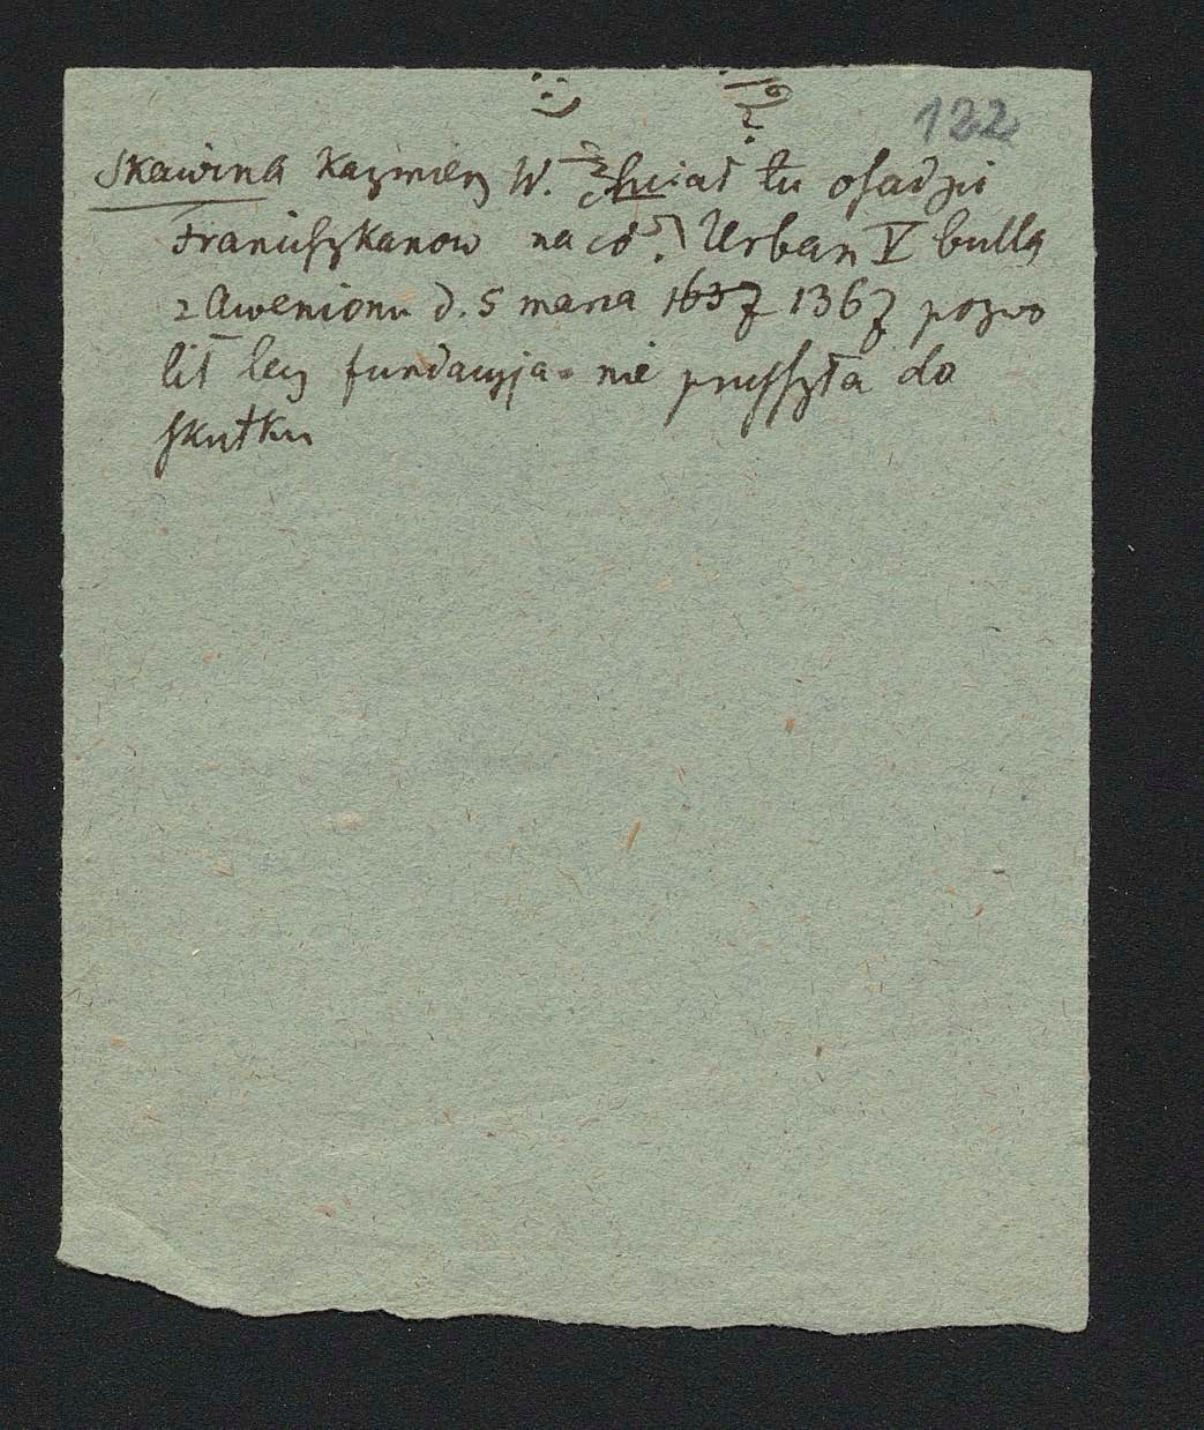 122
Skawina Kazmierz W. chciał tu osadzić
Franciszkanow na co Urban V bullą
z Awenionu d. 5 marca 1637 1367 pozwo
lił lecz fundacyja nie przyszła do
skutku